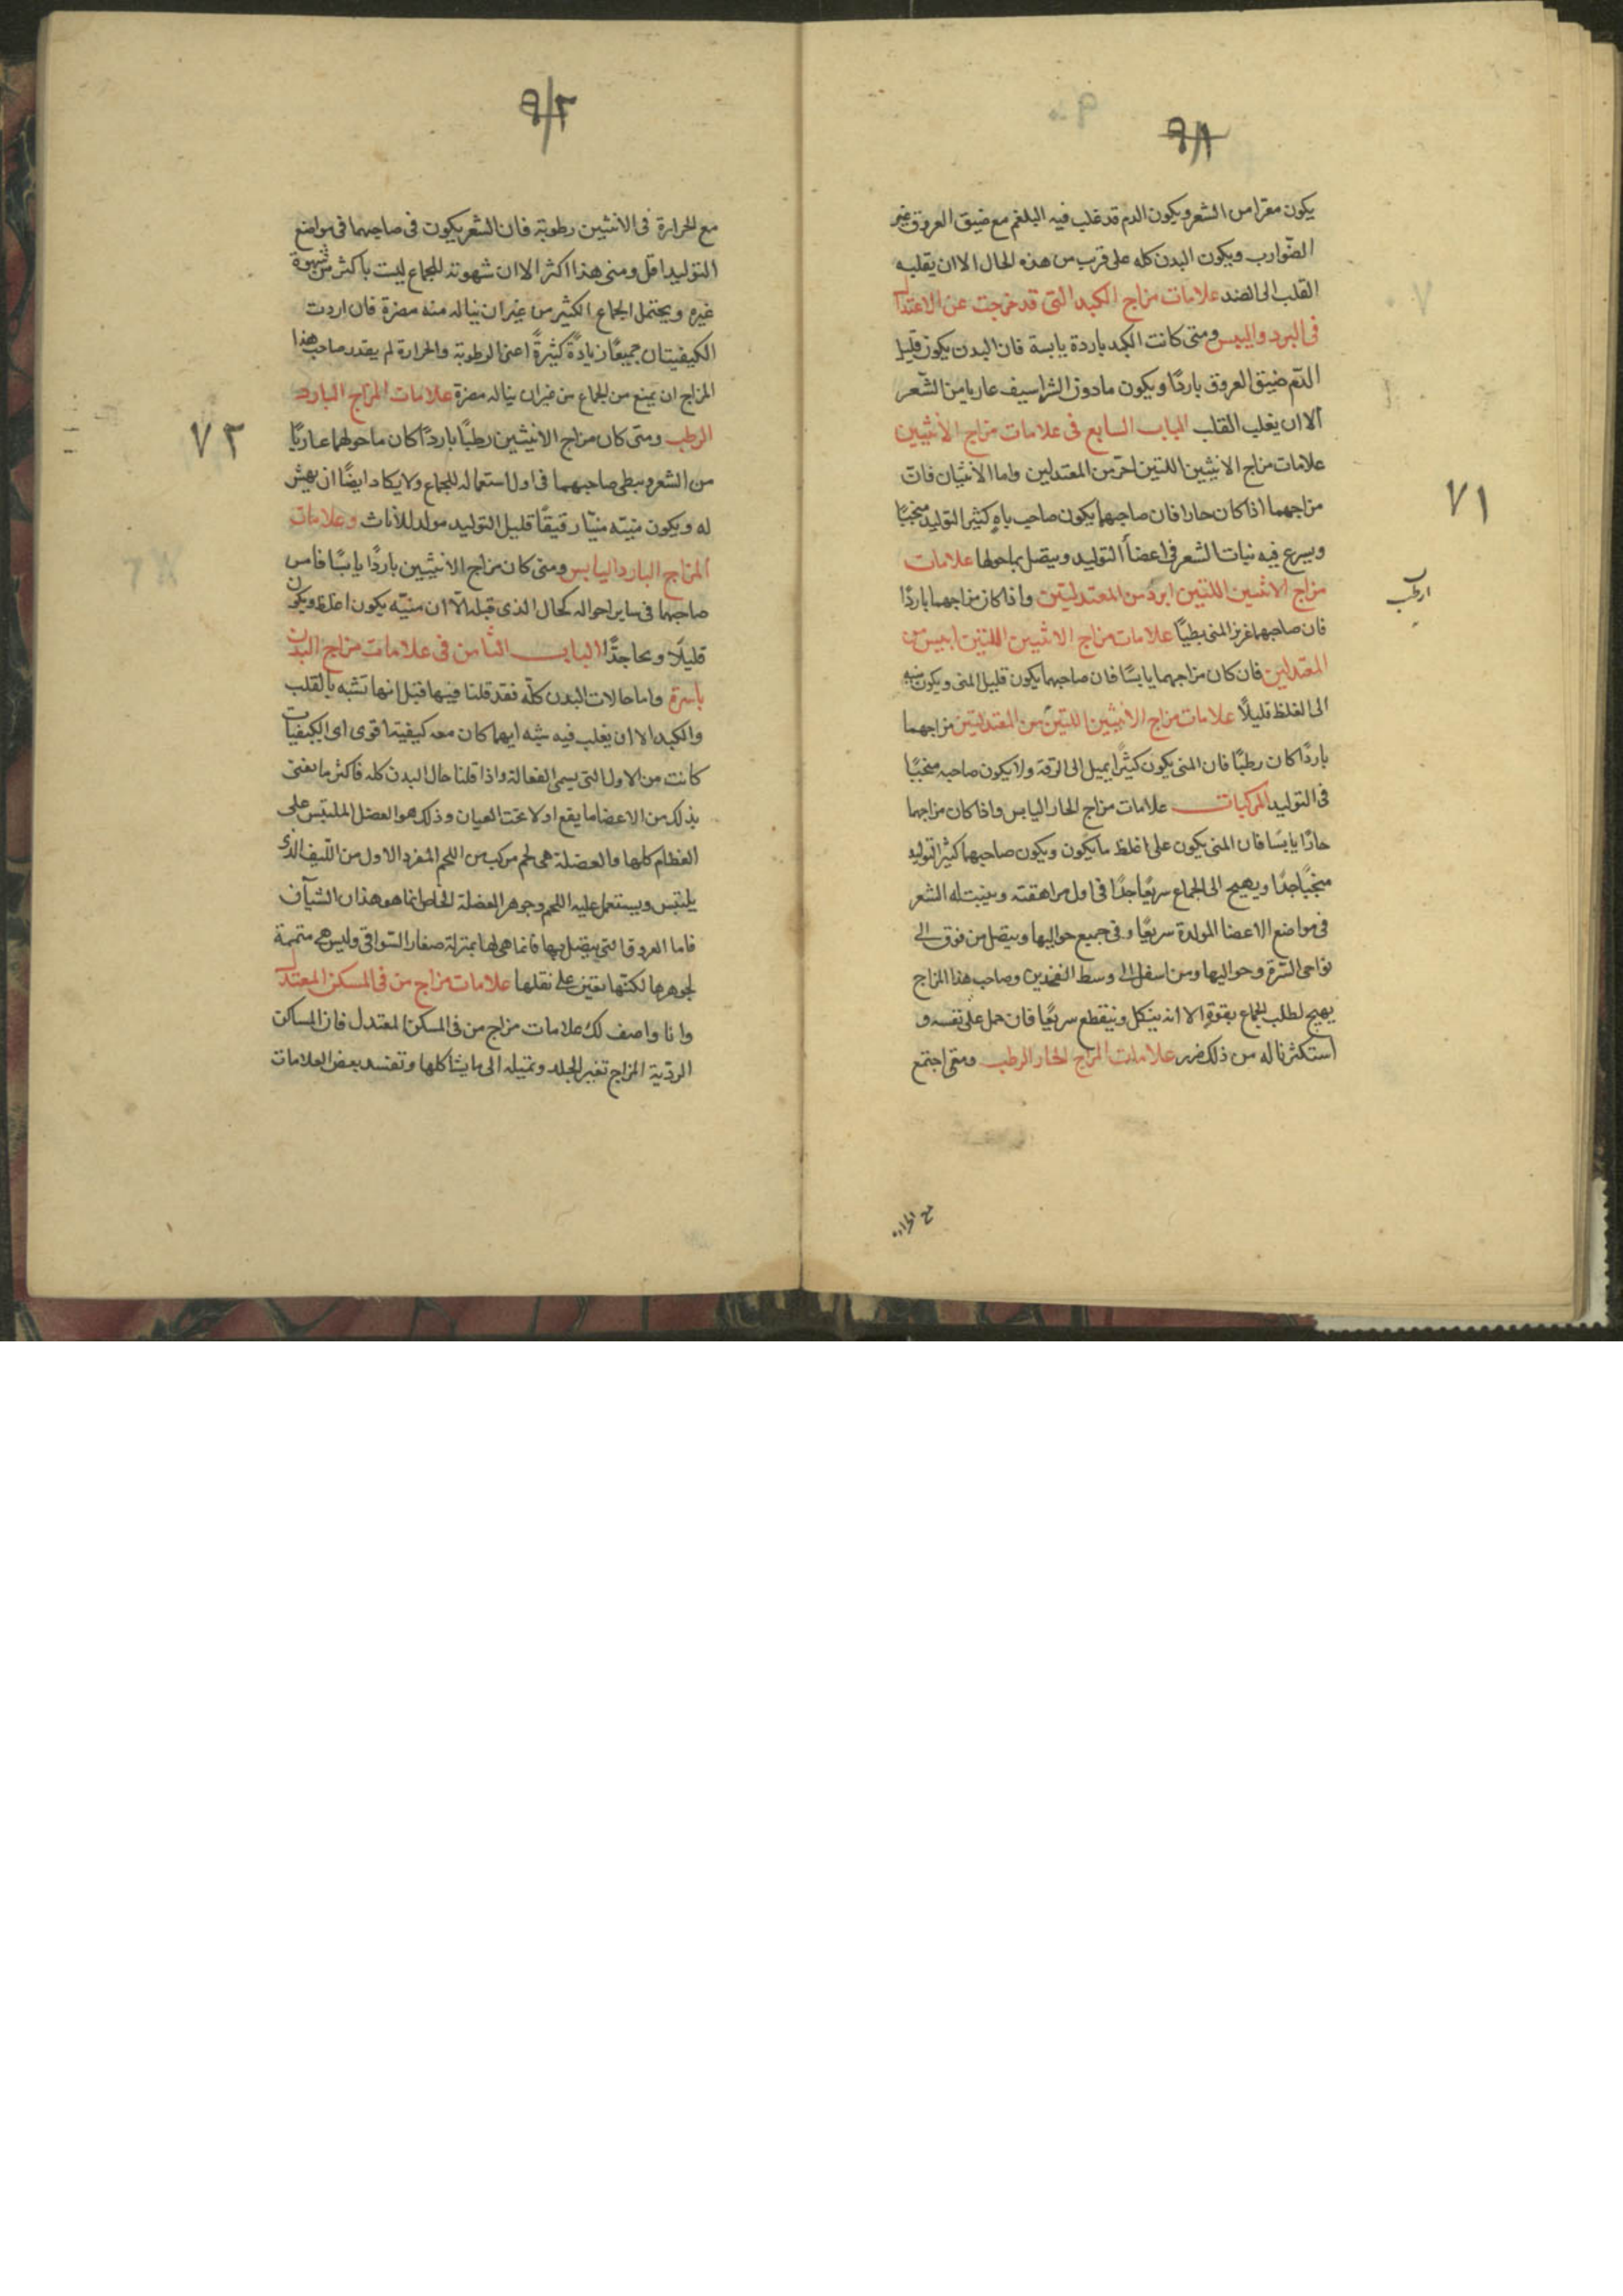 ٩٨
يكون معرا من الشعر ويكون الدم قد غلب فيه البلغم مع ضيق العروق غير
الضوارب ويكون البدن كله على قرب من هذه الحال الا ان يقلبه
القلب الى الضد علامات مزاج الكبد التى قد خرجت عن الاعتدال
فى البرد واليبس ومتى كانت الكبد باردة يابسة فان البدن يكون قليل
الدّم ضيق العروق باردًا ويكون مادون الشراسيف عاريا من الشّعر
الا ان يغلب القلب الباب السابع فى علامات مزاج الانثيين
علامات مزاج الانثيين اللتين احرّ من المعتدلين واما الأنثيان فان
مزاجهما اذا كان حارا فان صاحبهما يكون صاحب باهٍ كثير التوليد منجبًا
ويسرع فيه نبات الشعر فى اعضأ التوليد ويتصل بما حولها علامات
مزاج الانثيين اللتين ابرد من المعتدليتين واذا كان مزاجهما باردًا
فان صاحبهما غزيز المنى بطيًا علامات مزاج الانثيين اللتين ايبس من
المعتدلين فان كان مزاجهما يابسًا فان صاحبهما يكون قليل المنى ويكون منيه
الى الغلظ قليلًا علامات مزاج الانثيين اللتين من المعتدليتين مزاجهما
باردًا كان رطبًا فان المنى يكون كثيرًا يميل الى الرقة ولا يكون صاحبه منجبًا
فى التوليد المركبات علامات مزاج الحار اليابس واذا كان مزاجهما
حارًا يابسًا فان المنى يكون على اغلظ ما يكون ويكون صاحبهما كثير التوليد
منجبًا جدًا ويهيج الى الجماع سريعًا جدًا فى اول مراهقته وينبت له الشعر
فى مواضع الاعضا المولدة سريعًا وفى جميع حواليها ويتصل من فوق الى
نواحى السّرة وحواليها ومن اسفل الى وسط الفخذين وصاحب هذا المزاج
يهيج لطلب الجماع بقوةٍ الا انه ينكل وينقطع سريعًا فان حمل على نفسه و
استكثر ناله من ذلك ضرر علامات المزاج الحار الرطب ومتى اجتمع
٧١
ارطب
٩٢
مع الحرارة فى الانثيين رطوبة فان الشعر يكون فى صاحبهما فى مواضع
التوليد اقل ومنى هذا اكثر الا ان شهوته للجماع ليست باكثر من شهوة
غيره ويحتمل الجماع الكثير من غير ان يناله منه مضرة فان اردت
الكيفيتان جميعًا زيادةً كثيرةً اعنى الرطوبة والحرارة لم يقدر صاحب هذا
المزاج ان يمنع من الجماع من غير ان يناله مضرة علامات المزاج البارد
الرطب ومتى كان مزاج الانيثين رطبًا باردًا كان ما حولهما عاريًا
من الشعر ويبطى صاحبهما فى اول استعماله للجماع ولا يكاد ايضًا ان يهيش
له ويكون منيّه منيّا رقيقًا قليل التوليد مولد للأناث وعلامات
المزاج البارد اليابس ومتى كان مزاج الانثيين باردًا يابسًا فامر
صاحبهما فى ساير احواله كحال الذى قبله الّا ان منيّه يكون اغلظ ويكون
قليلًا وبحا جدًّا الباب الثامن فى علامات مزاج البدن
باسرة واما حالات البدن كلّه فقد قلنا فيها قبل انها تشبه بالقلب
والكبد الا ان يغلب فيه شبه ايهما كان معه كيفية اقوى اى الكيفيات
كانت من الاول التى يسمى الفعالة واذا قلنا حال البدن كله فاكثر ما نعنى
بذلك من الاعضا ما يقع اولا تحت العيان وذلك هو العضل الملتبس على
العظام كلها والعضلة هى لحم مركب من اللحم المفرد الاول من اللّيف الذى
يلتبس ويستعمل عليه اللحم وجوهر العضلة الخاص انما هو هذان الشيآن
فاما العروق التى يتصل بها فانما هى لها بمنزلة صغار السّواقى وليس هى متممة
لجوهرها لكنّها تعين على نقلها علامات مزاج من فى المسكن المعتدل
وانا واصف لك علامات مزاج من فى المسكن المعتدل فان المساكن
الرديّة المزاج تغير الجلد وتميله الى ما يشاكلها وتفسد بعض العلامات
٧٢